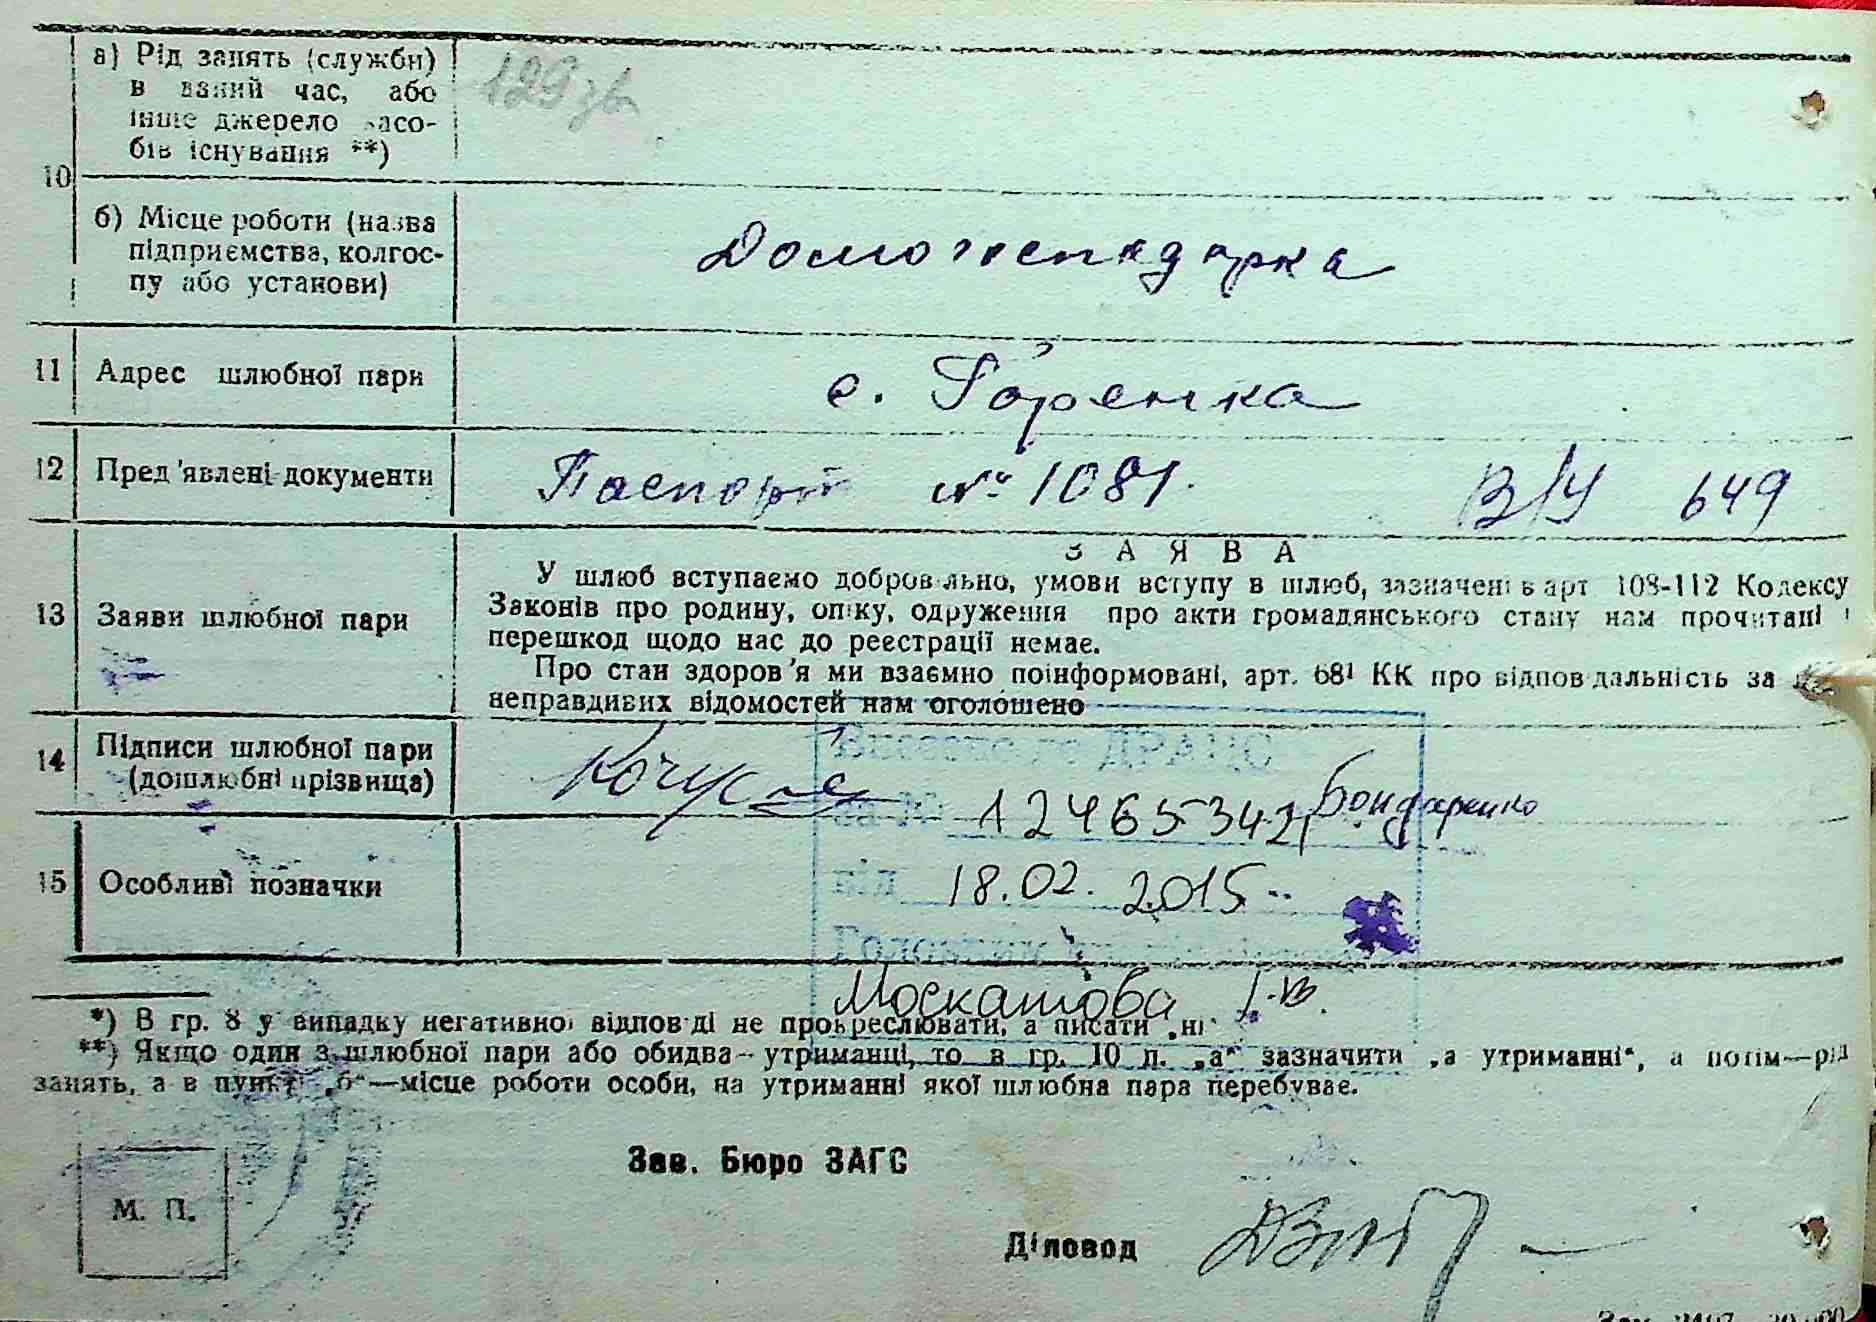 а) Рід занять (служби)
в даний час, або
інше джерело засо-
бів існування **)
129 зв
10
б) Місце роботи (назва
підприємства, колгос-
пу або установи)
Домогосподарка
11 Адрес шлюбної пари
с. Горенка
12 Пред'явлені документи
Паспорт № 1081. В/У 649
ЗАЯВА
13 Заяви шлюбної пари
У шлюб вступаємо добровільно, умови вступу в шлюб, зазначені в арт 108-112 Кодексу
Законів про родину, опіку, одруження про акти громадянського стану нам прочитані і
перешкод щодо нас до реєстрації немає.
Про стан здоров'я ми взаємно поінформовані, арт. 68¹ КК про відповідальність за
неправдивих відомостей нам оголошено
14 Підписи шлюбної пари
(дошлюбні прізвища)
Бондаренко
Внесено до ДРАЦС
за № 12465342
15 Особливі позначки
від 18.02.2015
Москатова І.В.
*) В гр. 8 у випадку негативної відповіді не прокреслювати, а писати „ні“
**) Якщо один з шлюбної пари або обидва - утриманці, то в гр. 10 п. „а“ зазначити „а утриманні“, а потім—рід
занять, а в пункті „б“—місце роботи особи, на утриманні якої шлюбна пара перебуває.
Зав. Бюро ЗАГС
М. П.
Діловод